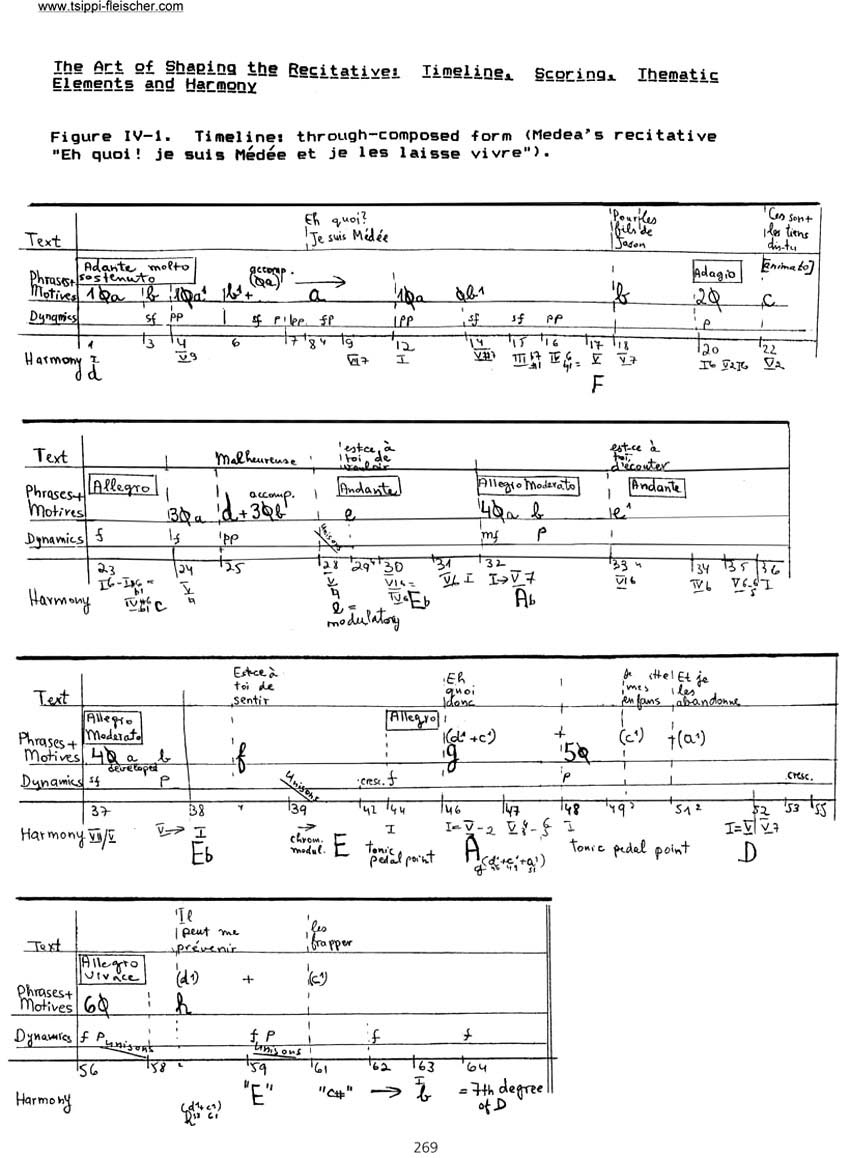 www.tsippi-fleischer.com
The Art of Shaping the Recitative: Timeline, Scoring, Thematic
Elements and Harmony
Figure IV-1. Timeline: through-composed form (Medea's recitative
"Eh quoi! je suis Médée et je les laisse vivre").
Eh quoi? Pour les Ces sont
Text Je suis Médée fils de les tiens
Jason dis-tu
Adante molto accomp. Adagio [animato]
Phrases+ sostenuto
Motives
Dynamics sf pp sf p pp fp pp sf sf pp p
1 3 4 6 7 8 9 12 14 15 16 17 18 20 22
Harmony I V9 VII7 I V V7 V2
d F
est-ce à est-ce à
Text Malheureuse toi de toi,
vouloir d'écouter
Phrases+ Allegro accomp. Andante Allegro Moderato Andante
Motives e e¹
Dynamics f f pp unisons mf p
23 24 25 28 29 30 31 32 33 34 35 36
Harmony C Eb Ab
e = modulatory
Est-ce à Eh Je et Et je
Text toi de quoi mes les
sentir donc enfans abandonne
Allegro Allegro
Phrases+ Moderato (d¹+c¹) + (c¹) +(a¹)
Motives a b f g
developed
Dynamics sf p unisons cresc. f p cresc.
37 38 39 42 44 46 47 48 49 51 52 53 55
Harmony VII/V V→ I → I I
Eb chrom. modul. E tonic pedal point A tonic pedal point D
Il
peut me les
Text prévenir frapper
Allegro
Vivace (d1) + (c¹)
Phrases+
Motives h
Dynamics f p unisons f p unisons f f
56 58 59 61 62 63 64
Harmony "E" "c#" → b = 7th degree
of D
269